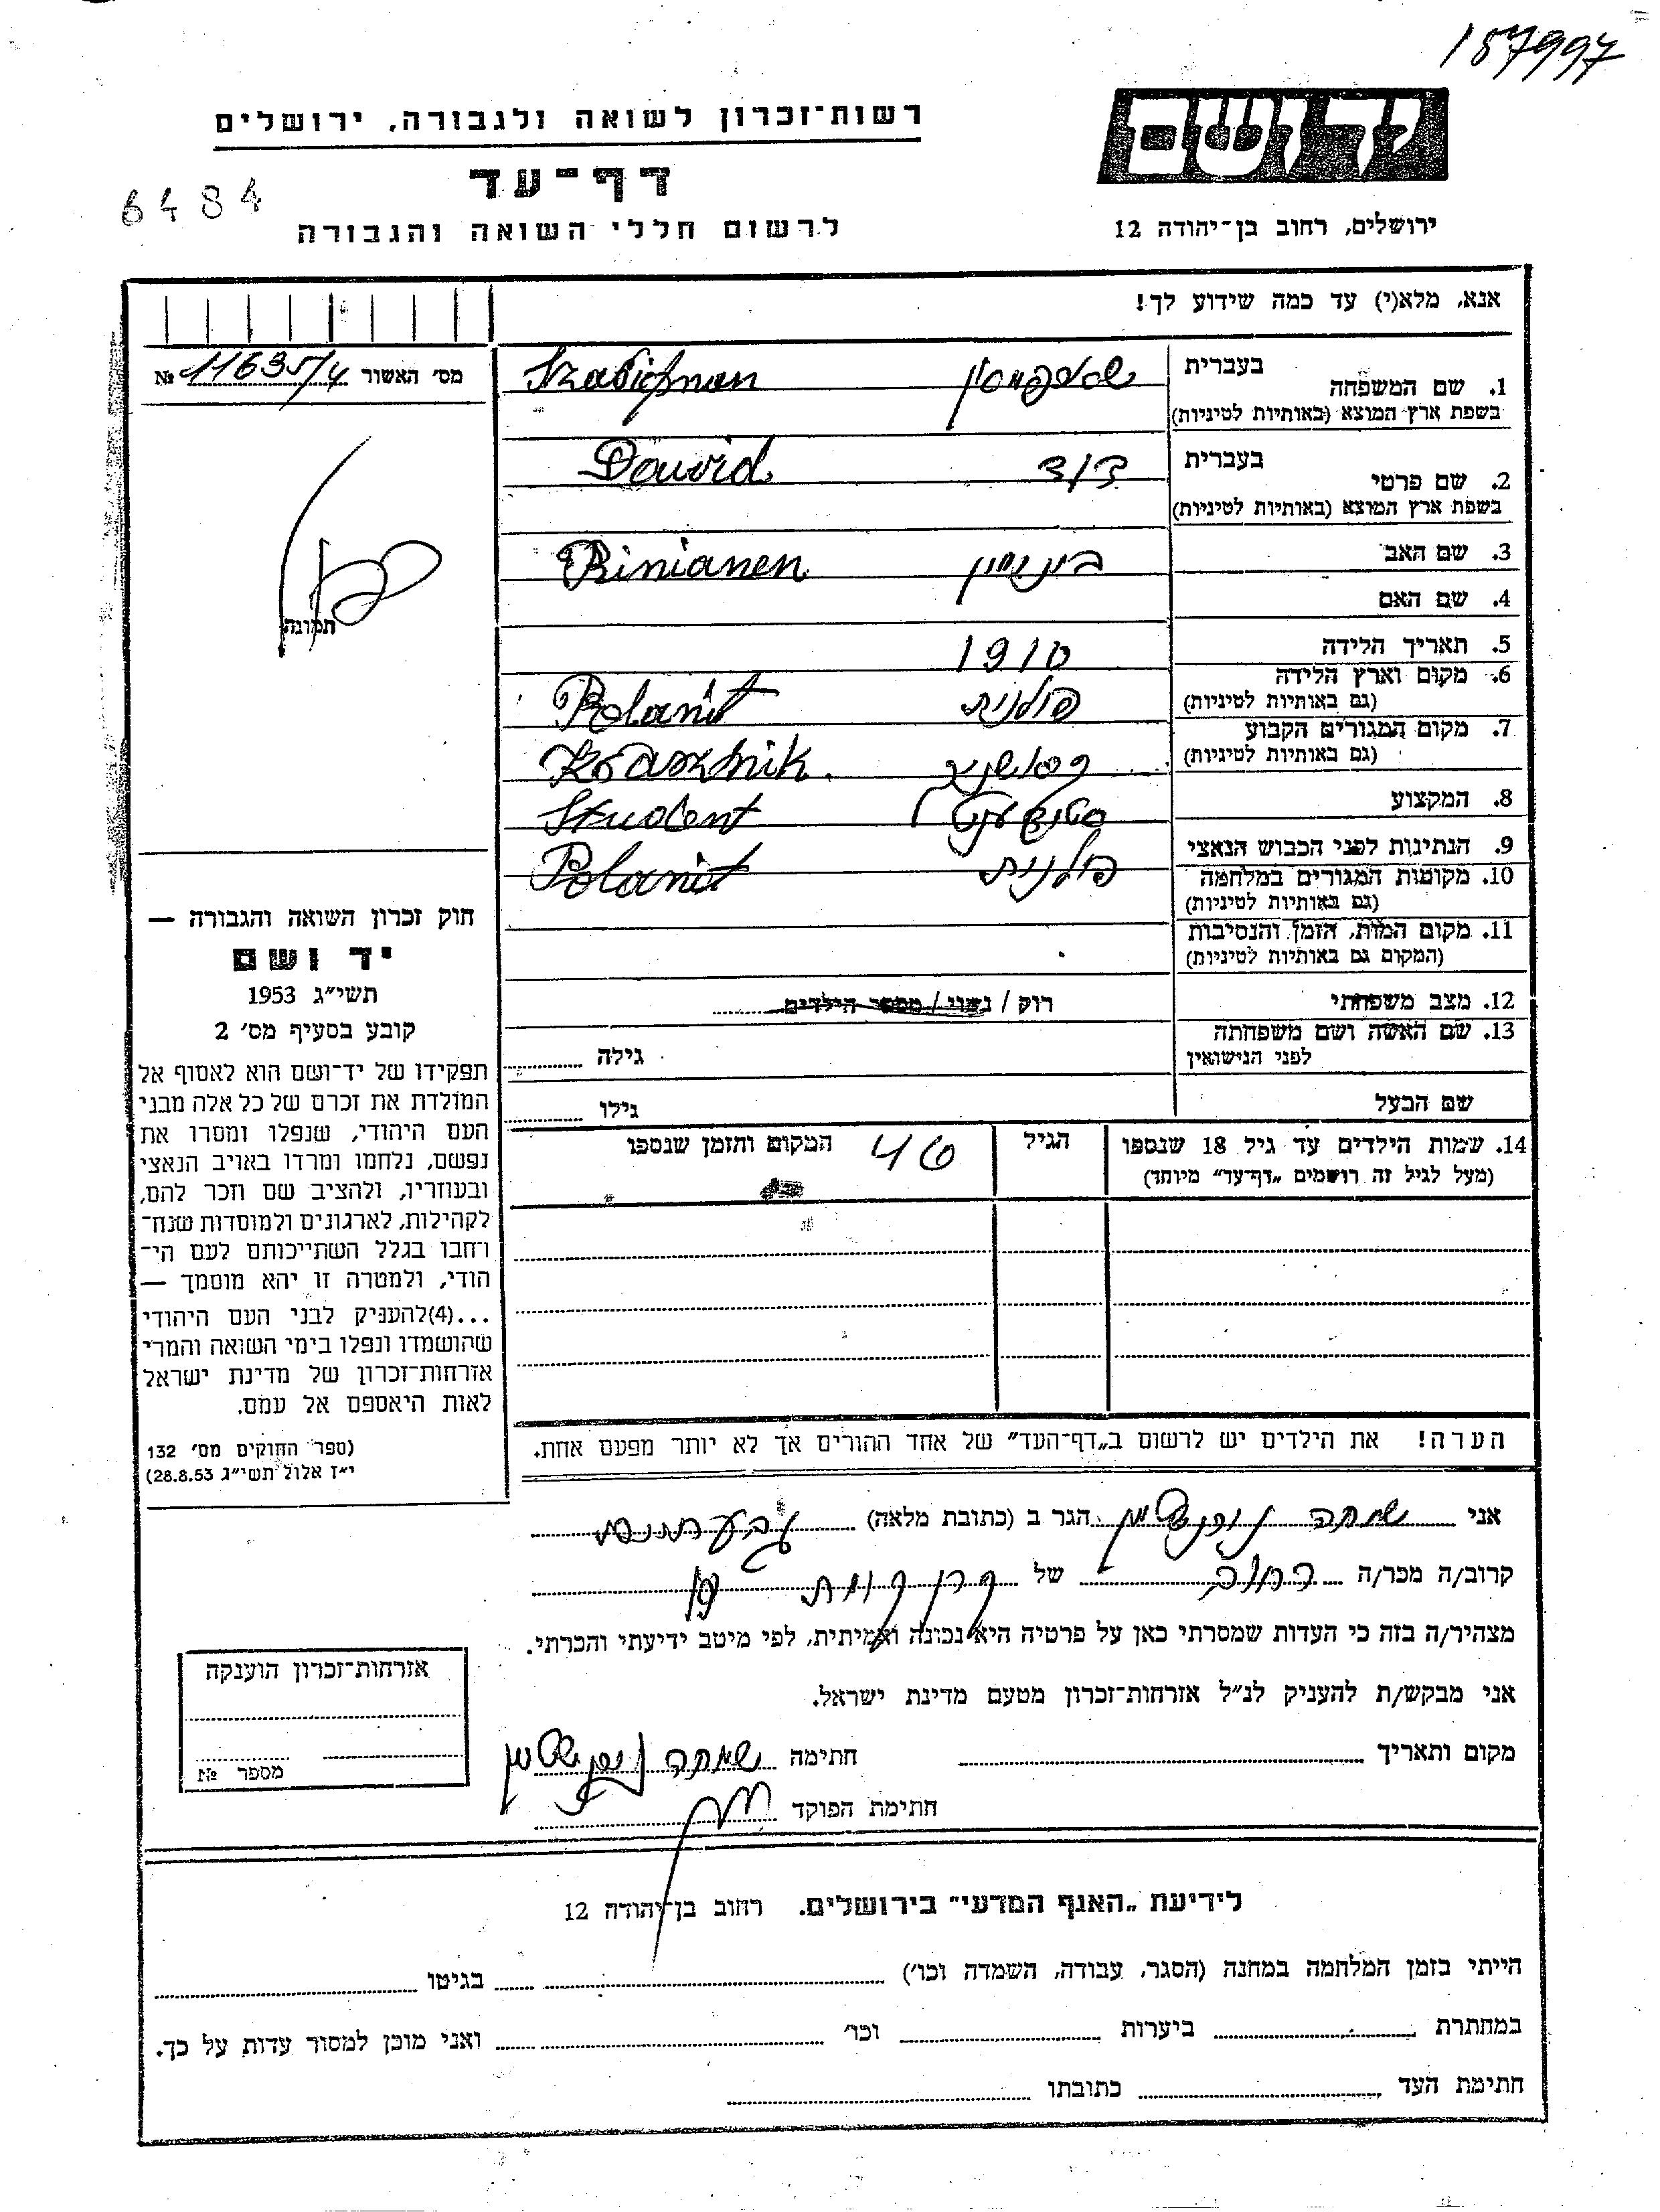 157997
יד ושם
רשות־זכרון לשואה ולגבורה, ירושלים
דף־עד
6484
לרשום חללי השואה והגבורה
ירושלים, רחוב בן־יהודה 12
אנא, מלא(י) עד כמה שידוע לך!
מס׳ האשור № 11635/4
בעברית
1. שם המשפחה
בשפת ארץ המוצא (באותיות לטיניות)
בעברית
2. שם פרטי דוד Dawid
בשפת ארץ המוצא (באותיות לטיניות)
3. שם האב
4. שם האם
תמונה
5. תאריך הלידה 1910
6. מקום וארץ הלידה פולנית
(גם באותיות לטיניות)
7. מקום המגורים הקבוע Krashnik
(גם באותיות לטיניות)
8. המקצוע סטודענט Student
9. הנתינות לפני הכבוש הנאצי פולנית
10. מקומות המגורים במלחמה
(גם באותיות לטיניות)
11. מקום המות, הזמן והנסיבות
(המקום גם באותיות לטיניות)
12. מצב משפחתי רוק / נשוי / מספר הילדים
13. שם האשה ושם משפחתה
לפני הנישואין גילה
שם הבעל גילו
14. שמות הילדים עד גיל 18 שנספו הגיל המקום והזמן שנספו
(מעל לגיל זה רושמים „דף־עד” מיוחד)
הערה! את הילדים יש לרשום ב„דף־העד” של אחד ההורים אך לא יותר מפעם אחת.
חוק זכרון השואה והגבורה —
יד ושם
תשי״ג 1953
קובע בסעיף מס׳ 2
תפקידו של יד־ושם הוא לאסוף אל
המולדת את זכרם של כל אלה מבני
העם היהודי, שנפלו ומסרו את
נפשם, נלחמו ומרדו באויב הנאצי
ובעוזריו, ולהציב שם וזכר להם,
לקהילות, לארגונים ולמוסדות שנח־
רחבו בגלל השתייכותם לעם הי־
הודי, ולמטרה זו יהא מוסמך —
...(4)להעניק לבני העם היהודי
שהושמדו ונפלו בימי השואה והמרי
אזרחות־זכרון של מדינת ישראל
לאות היאספם אל עמם.
(ספר החוקים מס׳ 132
י״ז אלול תשי״ג 28.8.53)
אני שמחה הגר ב (כתובת מלאה) גבעתיים
קרוב/ה מכר/ה רחוב של קרן קימת
מצהיר/ה בזה כי העדות שמסרתי כאן על פרטיה היא נכונה ואמיתית, לפי מיטב ידיעתי והכרתי.
אני מבקש/ת להעניק לנ״ל אזרחות־זכרון מטעם מדינת ישראל.
מקום ותאריך חתימה שמחה
חתימת הפוקד
אזרחות־זכרון הוענקה
מספר №
לידיעת „האגף המדעי” בירושלים. רחוב בן־יהודה 12
הייתי בזמן המלחמה במחנה (הסגר, עבודה, השמדה וכו׳) בגיטו
במחתרת ביערות וכו׳ ואני מוכן למסור עדות על כך.
חתימת העד כתובתו